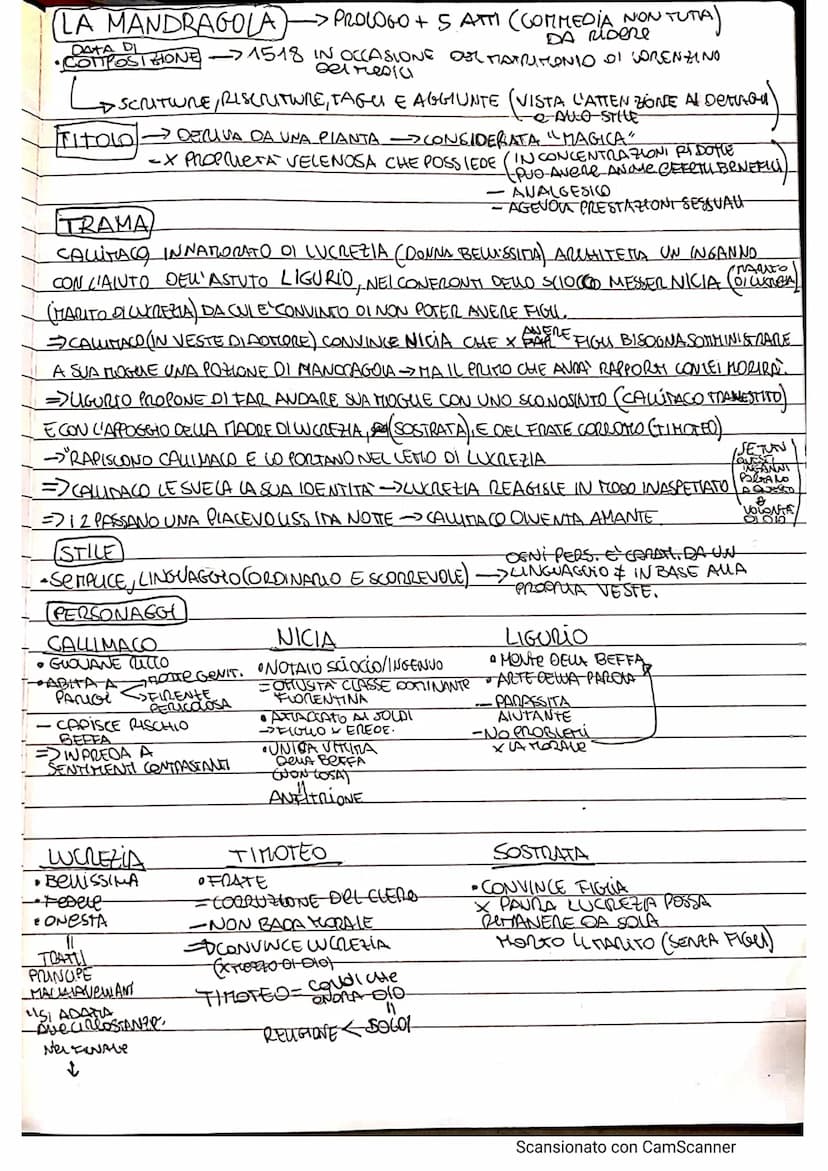 LA MANDRAGOLA → PROLOGO + 5 ATTI (COMMEDIA NON TUTTA DA RIDERE)
• DATA DI COMPOSIZIONE → 1518 IN OCCASIONE DEL MATRIMONIO DI LORENZINO DEI MEDICI
↳ SCRITTURE, RISCRITTURE, TAGLI E AGGIUNTE (VISTA L'ATTENZIONE AI DETTAGLI E ALLO STILE)
TITOLO → DERIVA DA UNA PIANTA → CONSIDERATA "MAGICA"
- X PROPRIETÀ VELENOSA CHE POSSIEDE (IN CONCENTRAZIONI RIDOTTE PUÒ AVERE ANCHE EFFETTI BENEFICI)
- ANALGESICO
- AGEVOLA PRESTAZIONI SESSUALI
TRAMA
CALLIMACO, INNAMORATO DI LUCREZIA (DONNA BELLISSIMA) ARCHITETTA UN INGANNO
CON L'AIUTO DELL'ASTUTO LIGURIO, NEI CONFRONTI DELLO SCIOCCO MESSER NICIA (MARITO DI LUCREZIA)
(MARITO DI LUCREZIA) DA CUI È CONVINTO DI NON POTER AVERE FIGLI.
⇒ CALLIMACO (IN VESTE DI DOTTORE) CONVINCE NICIA CHE X AVERE FIGLI BISOGNA SOMMINISTRARE
A SUA MOGLIE UNA POZIONE DI MANDRAGOLA → MA IL PRIMO CHE AVRÀ RAPPORTI CON LEI MORIRÀ.
⇒ LIGURIO PROPONE DI FAR ANDARE SUA MOGLIE CON UNO SCONOSINTO (CALLIMACO TRAVESTITO)
E CON L'APPOGGIO DELLA MADRE DI LUCREZIA, (SOSTRATA), E DEL FRATE CORROTTO (TIMOTEO)
→ RAPISCONO CALLIMACO E LO PORTANO NEL LETTO DI LUCREZIA
⇒ CALLIMACO LE SVELA LA SUA IDENTITÀ → LUCREZIA REAGISCE IN MODO INASPETTATO (SE TUTTI QUESTI INGANNI PORTANO A QUESTO È VOLONTÀ DI DIO)
⇒ I 2 PASSANO UNA PIACEVOLISSIMA NOTTE → CALLIMACO DIVENTA AMANTE
STILE
• SEMPLICE, LINGUAGGIO (ORDINARIO E SCORREVOLE) → OGNI PERS. È CARATT. DA UN LINGUAGGIO ≠ IN BASE ALLA PROPRIA VESTE.
PERSONAGGI
CALLIMACO
• GIOVANE RICCO
• ABITA A PARIGI
→ MORTE GENIT.
→ FIRENTE PERICOLOSA
- CAPISCE RISCHIO
BEFFA
⇒ IN PREDA A
SENTIMENTI CONTRASTANTI
NICIA
• NOTAIO SCIOCIO/INGENUO
= OTTUSITÀ CLASSE DOMINANTE
FIORENTINA
• ATTACCATO AI SOLDI
→ FIGLIO X EREDE.
• UNICA VITTIMA
DELLA BEFFA
(NON LO SA)
=
ANFITRIONE
LIGURIO
• MENTE DELLA BEFFA
• ARTE DELLA PAROLA
- PARASSITA
AIUTANTE
- NO PROBLEMI
X LA MORALE
LUCREZIA
• BELLISSIMA
• FEDELE
• ONESTA
=
TRATTI
PRINCIPE
MACHIAVELLIANI
"SI ADATTA
ALLE CIRCOSTANZE.
NEL FINALE
↓
TIMOTEO
• FRATE
= CORRUZIONE DEL CLERO
- NON BADA MORALE
⇒ CONVINCE LUCREZIA
(X MEZZO DI DIO)
TIMOTEO = COLUI CHE
ONORA DIO
=
RELIGIONE < SOLDI
SOSTRATA
• CONVINCE FIGLIA
X PAURA LUCREZIA POSSA
RIMANERE DA SOLA
MORTO IL MARITO (SENZA FIGLI)
Scansionato con CamScanner